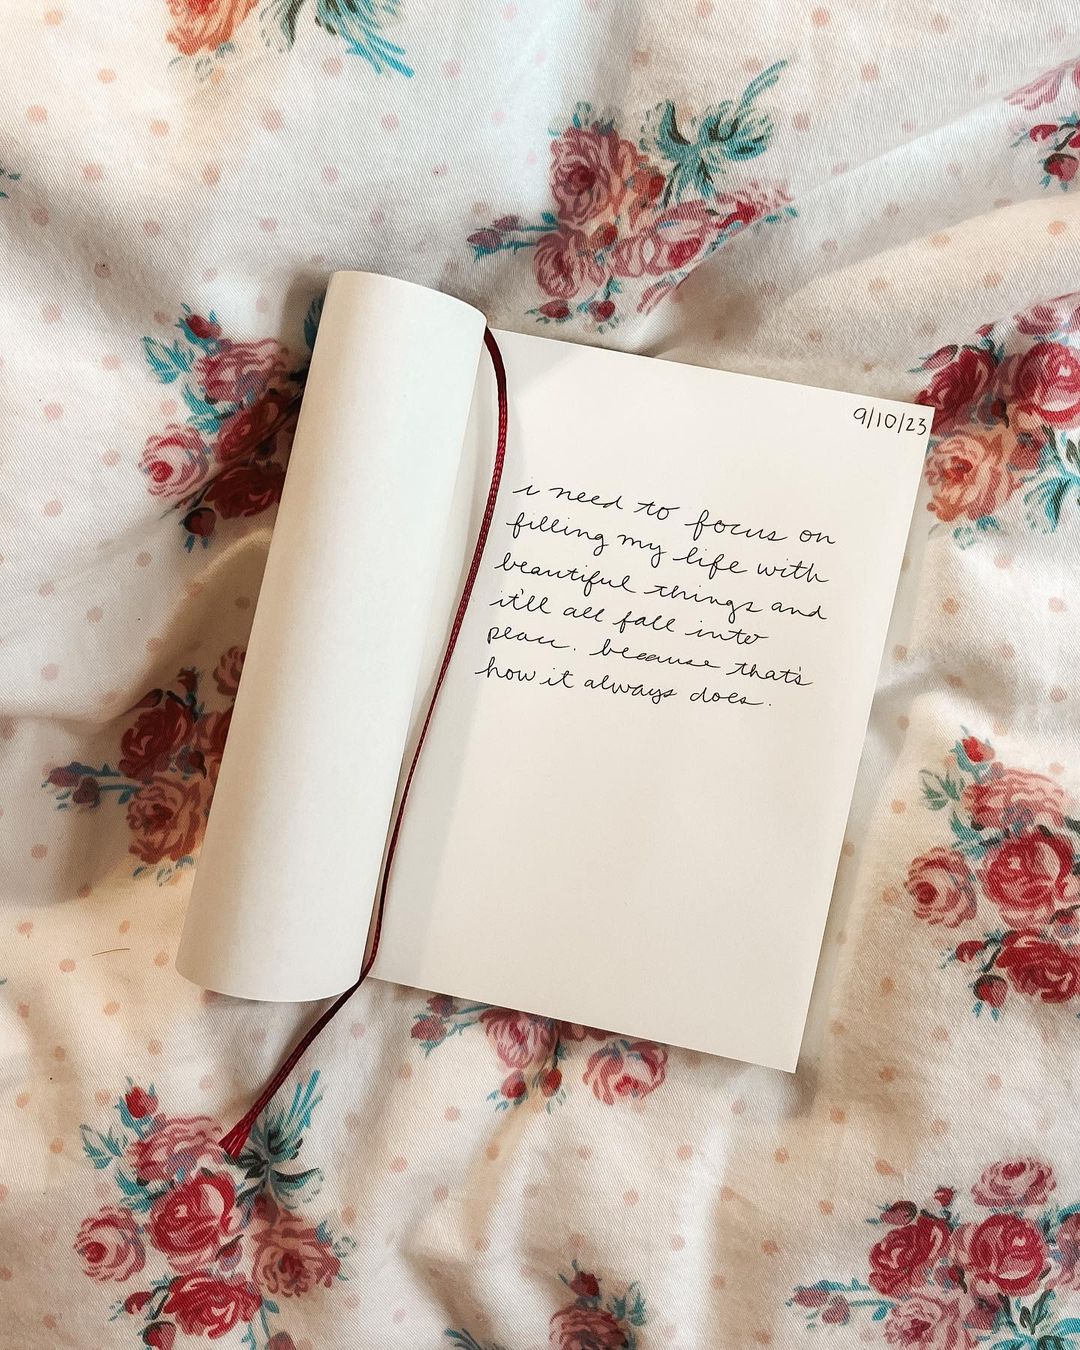 9/10/23
i need to focus on
filling my life with
beautiful things and
it'll all fall into
place. because that's
how it always does.